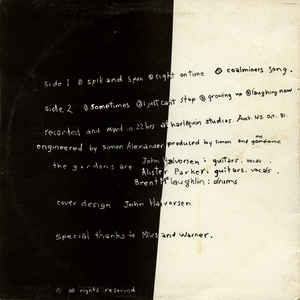 side 1 ① spik and span ② right on time ③ coalminers song.
side 2 ① sometimes ② i just cant stop ③ growing up ④ laughing now.
recorded and mixed in 22 hrs at harlequin studios. Auck NZ
engineered by simon Alexander. produced by simon and gordons
the gordons are John Halvorsen: guitars. vocals.
Alister Parker: guitars. vocals.
Brent McLaughlin: drums
cover design John Halvorsen
special thanks to Mews and Warner.
© all rights reserved